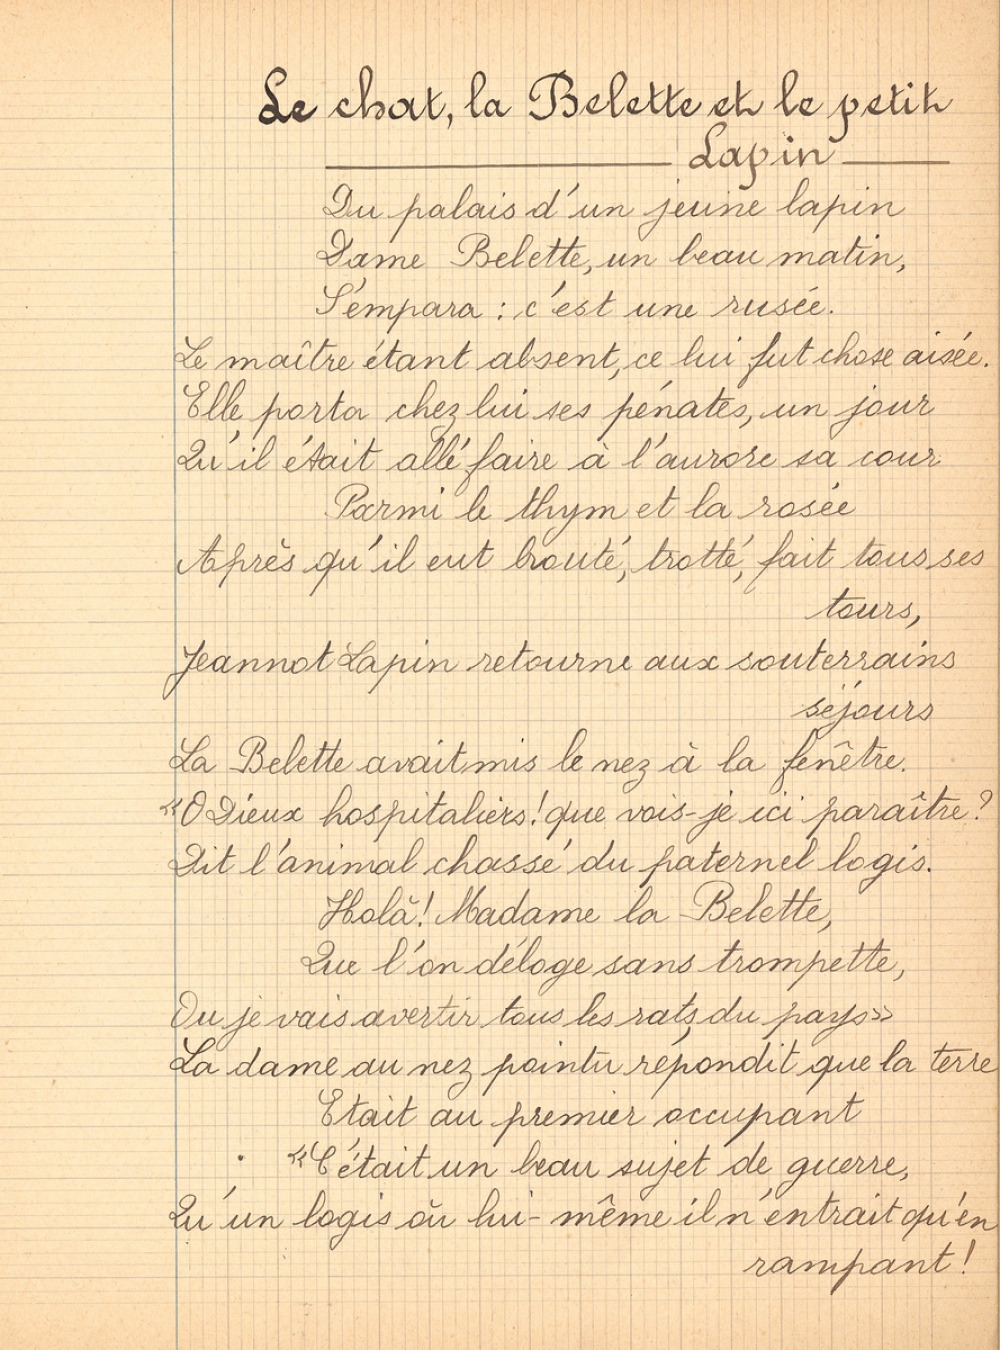 Le chat, la Belette et le petit
Lapin
Du palais d'un jeune lapin
Dame Belette, un beau matin,
S'empara : c'est une rusée.
Le maître étant absent, ce lui fut chose aisée.
Elle porta chez lui ses pénates, un jour
Qu'il était allé faire à l'aurore sa cour
Parmi le thym et la rosée
Après qu'il eut brouté, trotté, fait tous ses
tours,
Jeannot Lapin retourne aux souterrains
séjours
La Belette avait mis le nez à la fenêtre.
«O Dieux hospitaliers! que vois-je ici paraître?
Dit l'animal chassé du paternel logis.
Holà! Madame la Belette,
Que l'on déloge sans trompette,
Ou je vais avertir tous les rats du pays»
La dame au nez pointu répondit que la terre
Etait au premier occupant
«C'était un beau sujet de guerre,
Qu'un logis où lui-même il n'entrait qu'en
rampant!